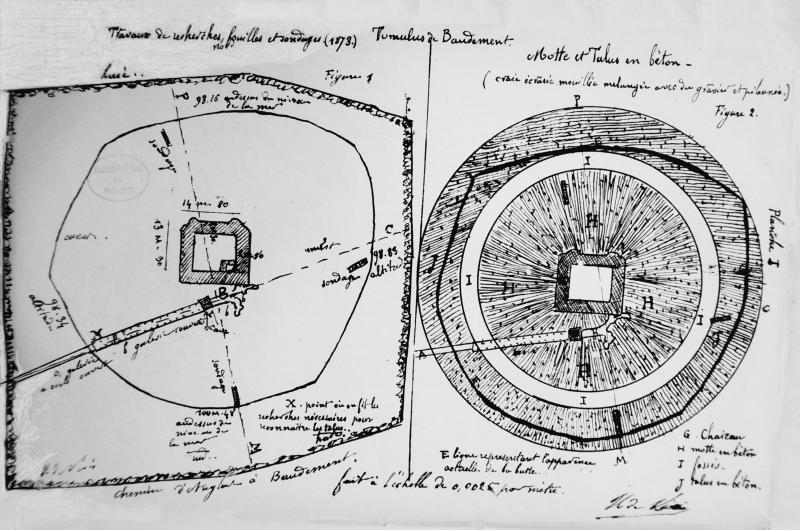 Travaux de recherches, fouilles et sondages (1873.) Tumulus de Baudement.
nord
Figure 1
Motte et Talus en béton -
(craie écrasée mouillée melangée avec du gravier et pilonnée.)
Figure 2.
Planche I
98.16 audessus du niveau
de la mer
sondage
14 m. 80
13 M. 30
ouest
C
98.83
altitude
sondage
97.34
altitude
B
X
galerie couverte
à ciel ouvert
sondage
100M.48
audessus du
niveau de
la mer
sud
M
X. point où on fit les
recherches nécessaires pour
reconnaitre les talus.
chemin d'Anglure à Baudement.
fait à l'échelle de 0,0025 par mètre.
P
I
H
H
H
H
I
I
I
J
A
C
M
E ligne representant l'apparence
actuelle de la butte.
G. Chateau
H motte en béton
I fossés.
J talus en béton.